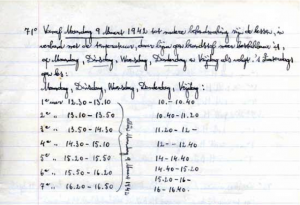 71° Vanaf Maandag 9 Maart 1942 tot nadere zijn de lessen, in
verband met de temperatuur, door
op Maandag, Dinsdag, Woensdag, Donderdag en Vrijdag als volgt. 's Zaterdags
Maandag, Dinsdag, Woensdag, Donderdag, Vrijdag:
1e uur 12.30-13.10 10.-10.40
2e „ 13.10-13.50 10.40-11.20
3e „ 13.50-14.30 11.20-12-
4e „ 14.30-15.10 12--12.40
5e „ 15.20-15.50 14-14.40
6e „ 15.50-16.20 14.40-15.20
7e „ 16.20-16.50 15.20-16-
16-16.40.
Maandag 9 Maart 1942